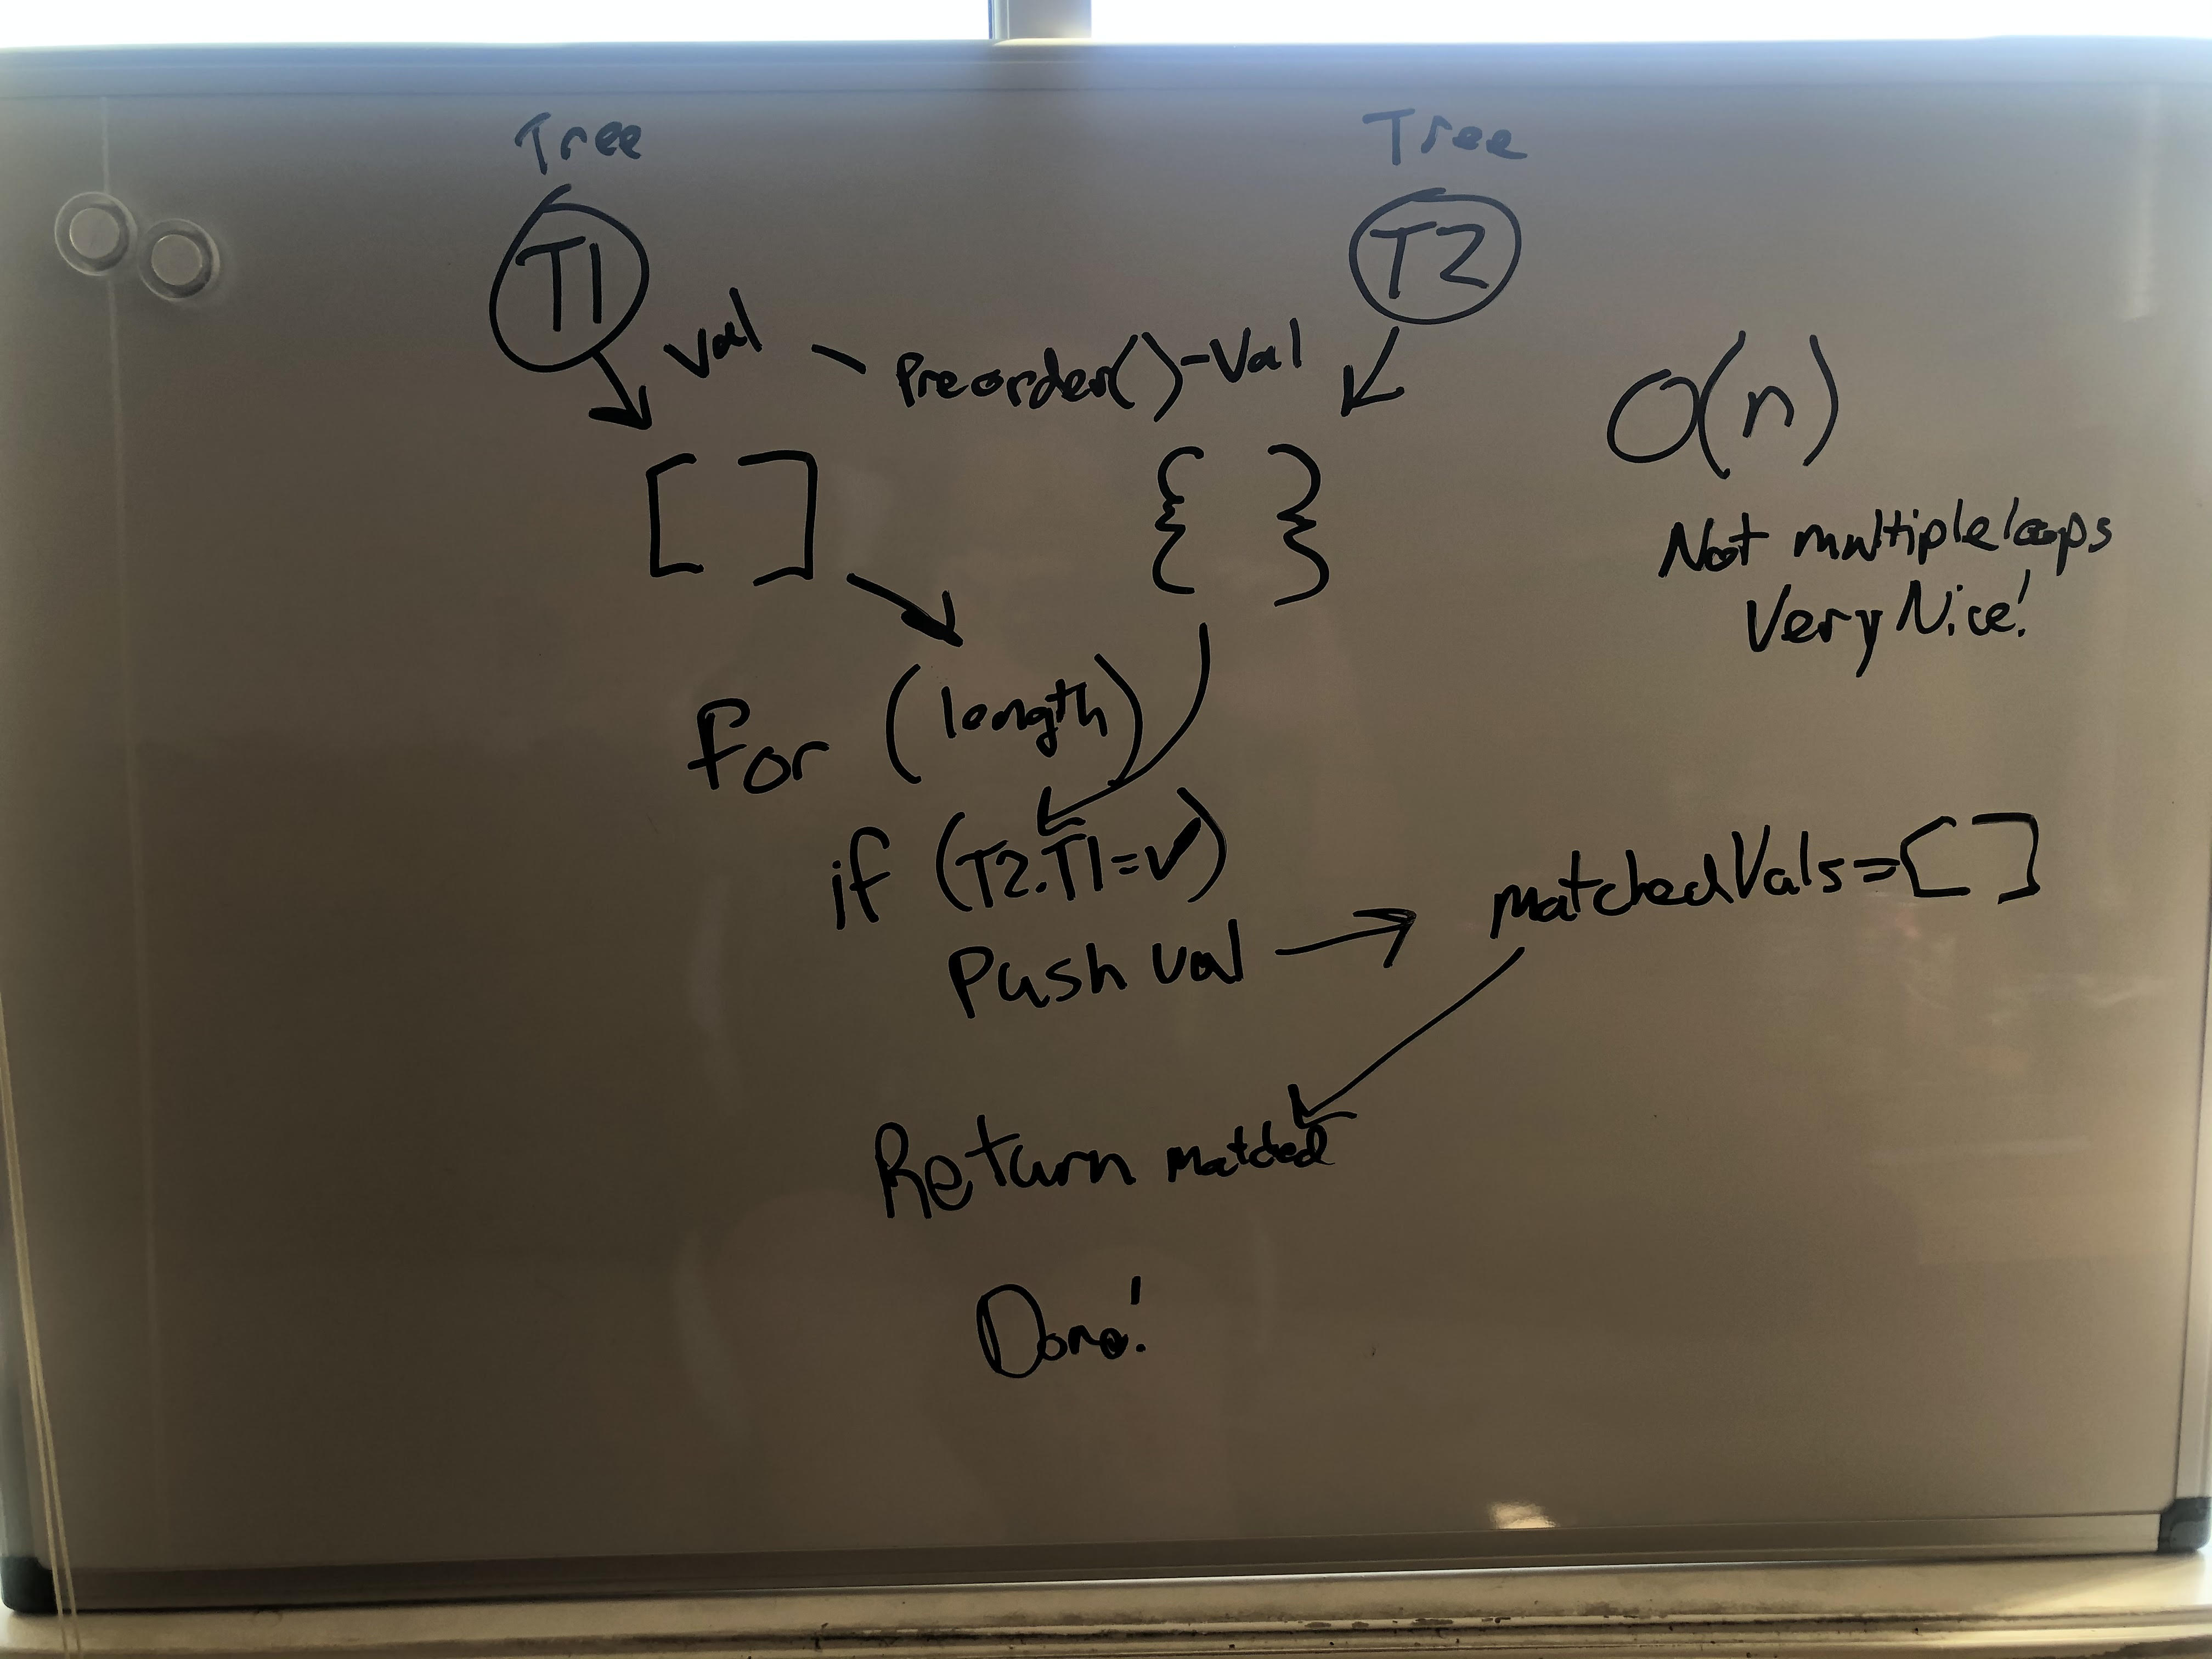 Tree
Tree
T1
T2
Val - Preorder()-Val
O(n)
[ ]
{ }
Not multiple loops
Very Nice!
for (length)
if (T2.T1=✓)
matchedVals=[]
Push val
Return matched
Done!